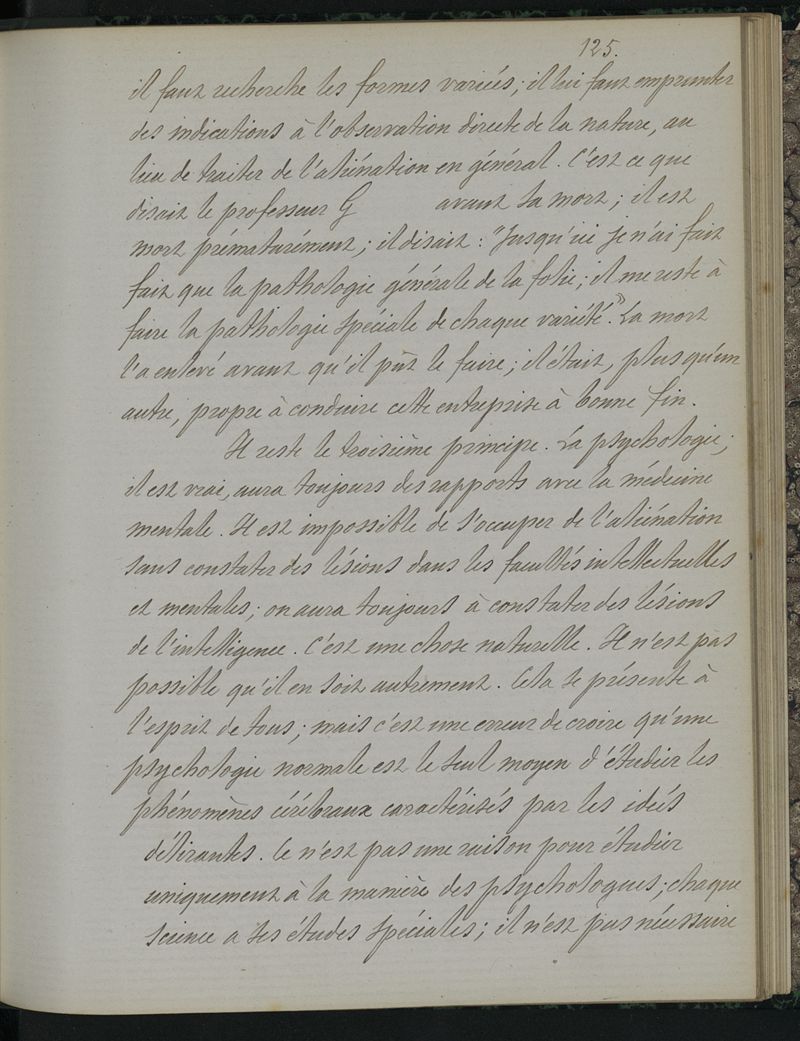 125.
il faut recherche les formes variées; il lui faut emprunter
des indications à l'observation directe de la nature, au
lieu de traiter de l'aliénation en général. C'est ce que
disait le professeur G avant sa mort; il est
mort prématurément; il disait: "Jusqu'ici je n'ai fait
fait que la pathologie générale de la folie; il me reste à
faire la pathologie spéciale de chaque variété". La mort
l'a enlevé avant qu'il pût le faire; il était, plus qu'un
autre, propre à conduire cette entreprise à bonne fin.
Il reste le troisième principe. La psychologie,
il est vrai, aura toujours des rapports avec la médecine
mentale. Il est impossible de s'occuper de l'aliénation
sans constater des lésions dans les facultés intellectuelles
et mentales; on aura toujours à constater des lésions
de l'intelligence. C'est une chose naturelle. Il n'est pas
possible qu'il en soit autrement. Cela se présente à
l'esprit de tous; mais c'est une erreur de croire qu'une
psychologie normale est le seul moyen d'étudier les
phénomènes cérébraux caractérisés par les idées
délirantes. Ce n'est pas une raison pour étudier
uniquement à la manière des psychologues; chaque
science a ses études spéciales; il n'est pas nécessaire